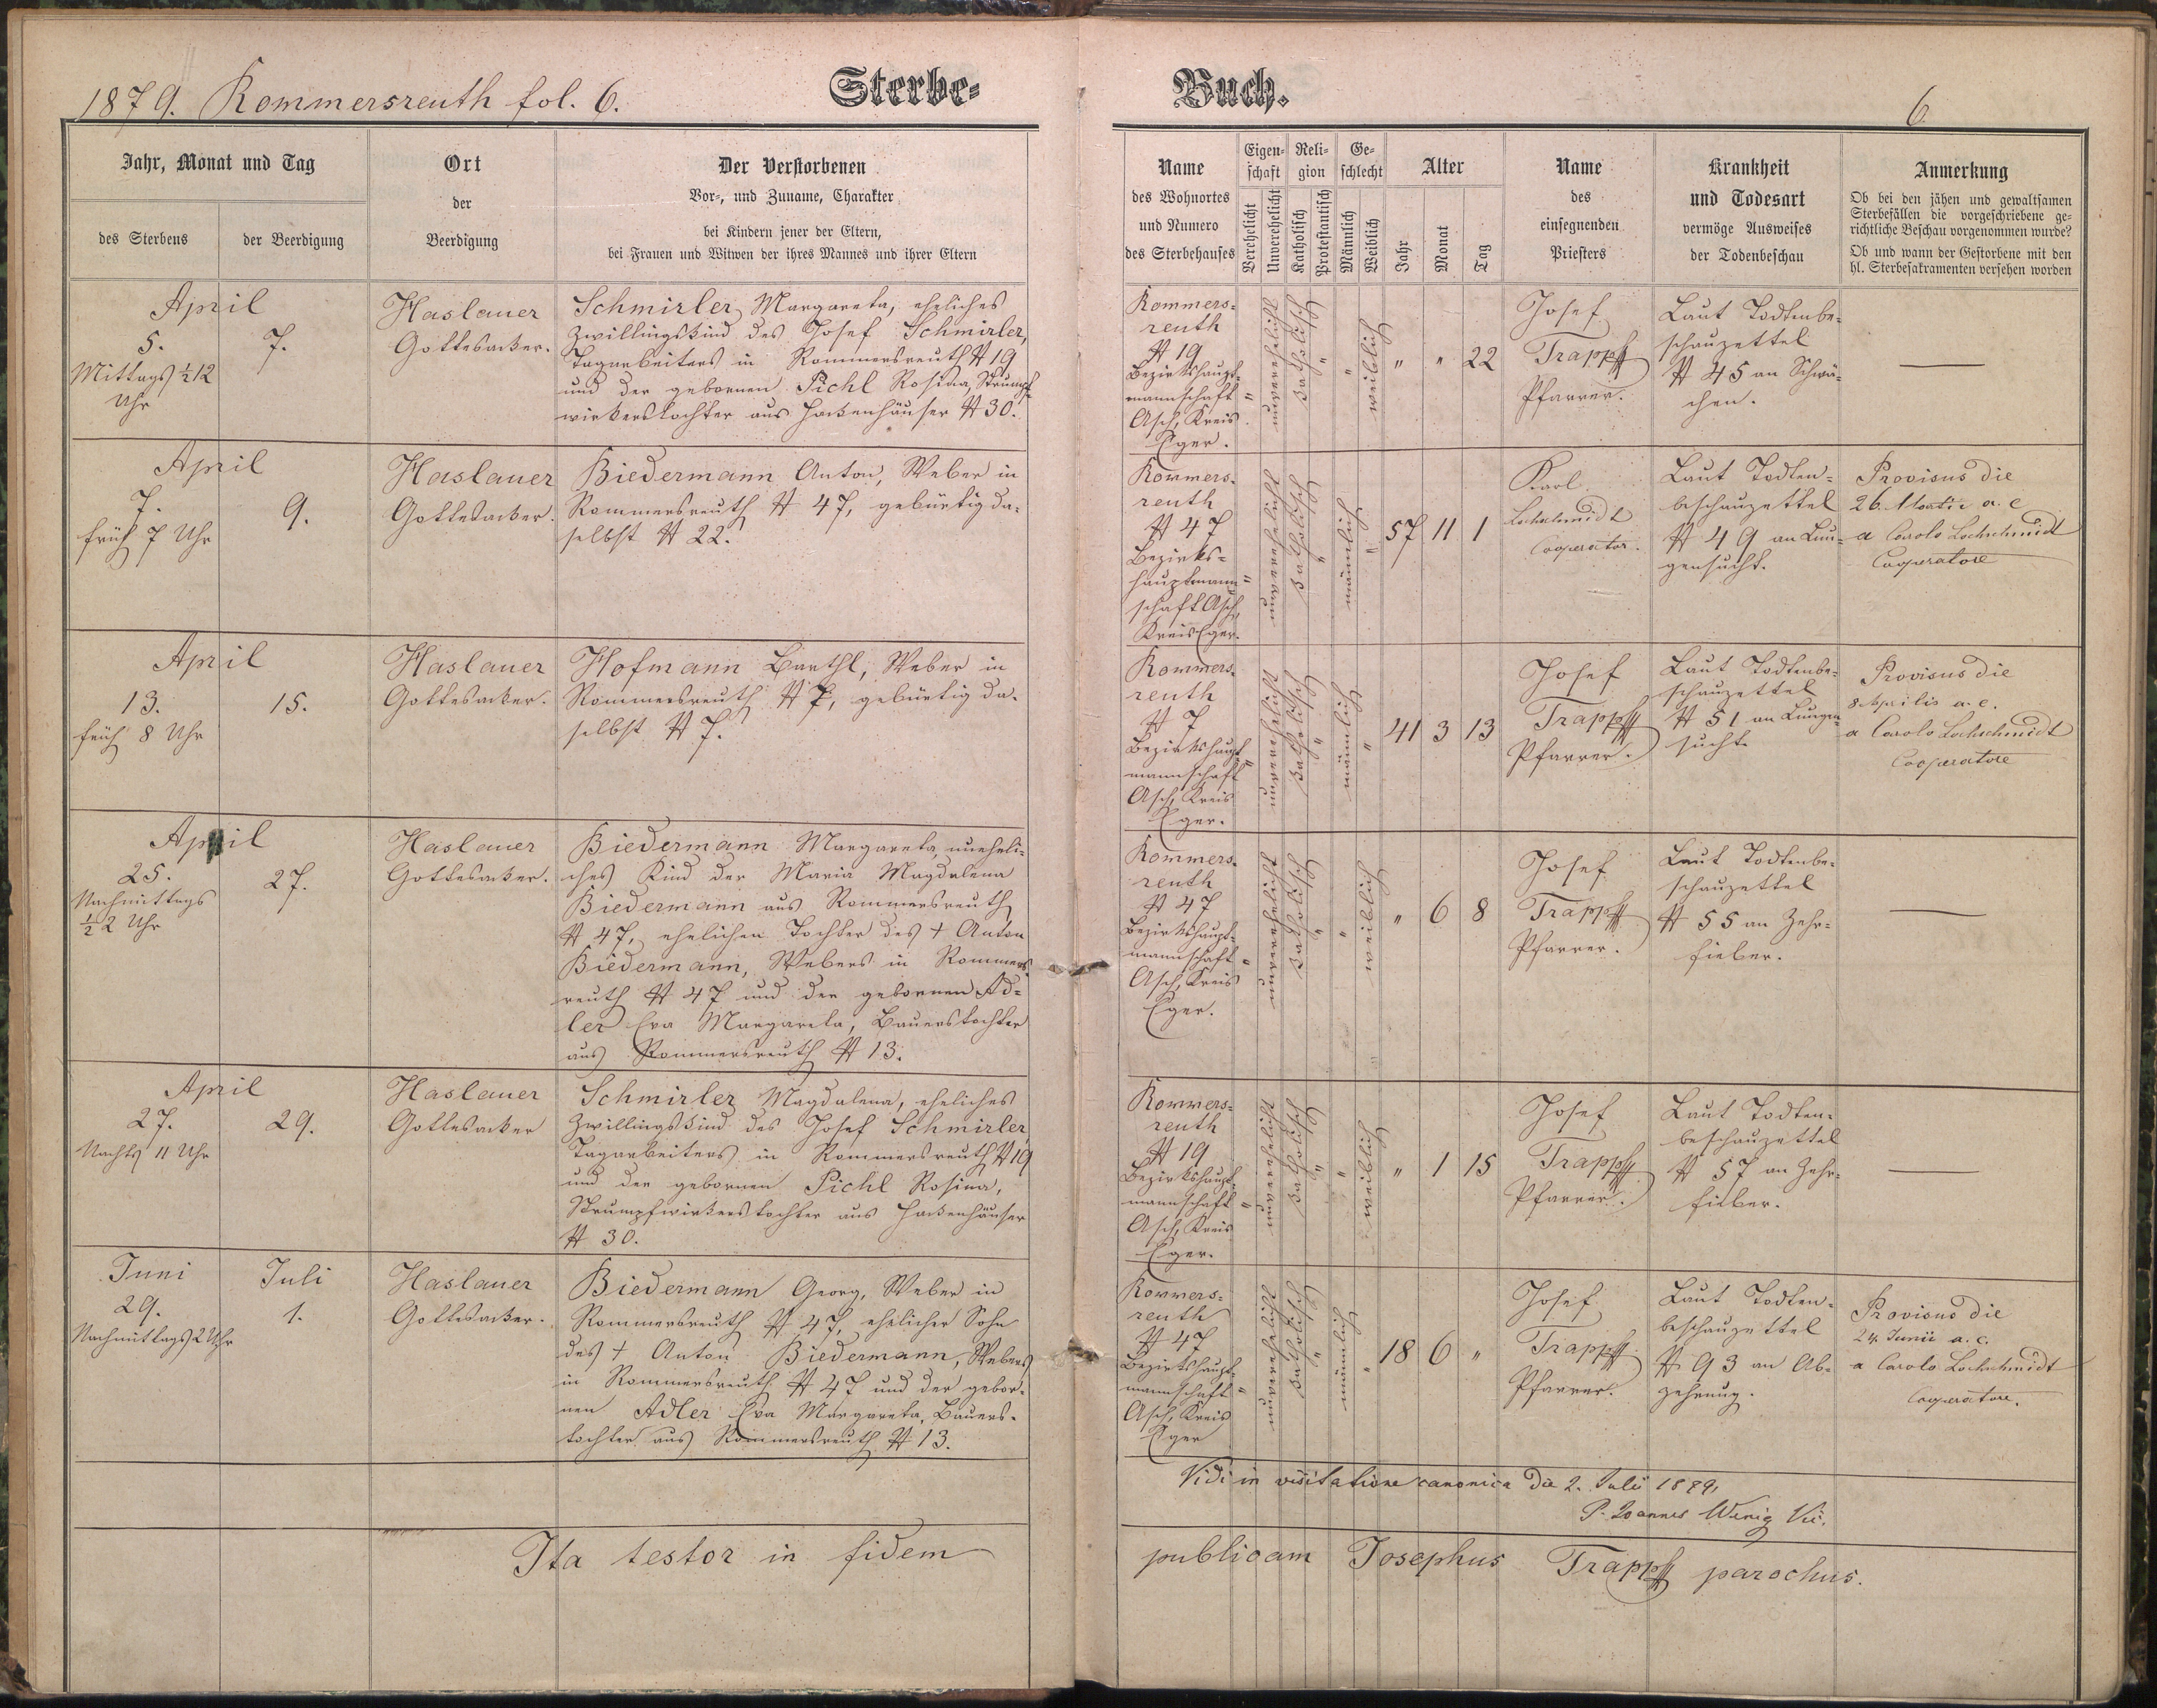 1879. Rommersreuth fol. 6.
Sterbe-
Buch.
6.
Jahr, Monat und Tag
des Sterbens
der Beerdigung
Ort
der
Beerdigung
Der Verstorbenen
Vor-, und Zuname, Charakter
bei Kindern jener der Eltern,
bei Frauen und Witwen der ihres Mannes und ihrer Eltern
Name
des Wohnortes
und Numero
des Sterbehauses
Eigen-
schaft
Verehelicht
Unverehelicht
Reli-
gion
Katholisch
Protestantisch
Ge-
schlecht
Männlich
Weiblich
Alter
Jahr
Monat
Tag
Name
des
einsegnenden
Priesters
Krankheit
und Todesart
vermöge Ausweises
der Todenbeschau
Anmerkung
Ob bei den jähen und gewaltsamen
Sterbefällen die vorgeschriebene ge-
richtliche Beschau vorgenommen wurde?
Ob und wann der Gestorbene mit den
hl. Sterbesakramenten versehen worden
April
5.
Mittags ½12
Uhr
7.
Haslauer
Gottesacker.
Schmirler Margareta, eheliches
Zwillingskind des Josef Schmirler,
Tagarbeiters in Rommersreuth # 19
und der gebornen Pichl Rosina, Strumpf-
wirkerstochter aus Hackenhäuser # 30.
Rommers-
reuth
# 19
Bezirkshaupt-
mannschaft
Asch, Kreis
Eger.
"
unverehelicht
katholisch
"
"
weiblich
" " 22
Josef
Trappf
Pfarrer.
Laut Todtenbe-
schauzettel
# 45 an Schwä-
chen.
April
7.
früh 7 Uhr
9.
Haslauer
Gottesacker.
Biedermann Anton, Weber in
Rommersreuth # 47, gebürtig da-
selbst # 22.
Rommers-
reuth
# 47
Bezirks-
hauptmann-
schaft Asch,
Kreis Eger.
"
unverehelicht
katholisch
"
männlich
"
57 11 1
Karl
Lochschmidt
Cooperator.
Laut Todten-
beschauzettel
# 49 an Lun-
gensucht.
Provisus die
26. Martii a. c
a Carolo Lochschmidt
Cooperatore
April
13.
früh 8 Uhr
15.
Haslauer
Gottesacker.
Hofmann Barthl, Weber in
Rommersreuth # 7, gebürtig da-
selbst # 7.
Rommers-
reuth
# 7
Bezirkshaupt-
mannschaft
Asch, Kreis
Eger.
"
unverehelicht
katholisch
"
männlich
"
41 3 13
Josef
Trappf
Pfarrer.
Laut Todtenbe-
schauzettel
# 51 an Lungen-
sucht.
Provisus die
8 Aprilis a. c.
a Carolo Lochschmidt
Cooperatore
April
25.
Nachmittags
½2 Uhr
27.
Haslauer
Gottesacker.
Biedermann Margareta, uneheli-
ches Kind der Maria Magdalena
Biedermann aus Rommersreuth
# 47, ehelichen Tochter des † Anton
Biedermann, Webers in Rommers-
reuth # 47 und der gebornen Ad-
ler Eva Margareta, Bauerstochter
aus Rommersreuth # 13.
Rommers-
reuth
# 47
Bezirkshaupt-
mannschaft
Asch, Kreis
Eger.
"
unverehelicht
katholisch
"
"
weiblich
" 6 8
Josef
Trappf
Pfarrer.
Laut Todtenbe-
schauzettel
# 55 an Zehr-
fieber.
April
27.
Nachts 11 Uhr
29.
Haslauer
Gottesacker
Schmirler Magdalena, eheliches
Zwillingskind des Josef Schmirler,
Tagarbeiters in Rommersreuth # 19
und der gebornen Pichl Rosina,
Strumpfwirkerstochter aus Hackenhäuser
# 30.
Rommers-
reuth
# 19
Bezirkshaupt-
mannschaft
Asch, Kreis
Eger.
"
unverehelicht
katholisch
"
"
weiblich
" 1 15
Josef
Trappf
Pfarrer.
Laut Todten-
beschauzettel
# 57 an Zehr-
fieber.
Juni
29.
Nachmittags 2 Uhr
Juli
1.
Haslauer
Gottesacker.
Biedermann Georg, Weber in
Rommersreuth # 47, ehelicher Sohn
des † Anton Biedermann, Webers
in Rommersreuth # 47 und der gebor-
nen Adler Eva Margareta, Bauers-
tochter aus Rommersreuth # 13.
Rommers-
reuth
# 47
Bezirkshaupt-
mannschaft
Asch, Kreis
Eger
"
unverehelicht
katholisch
"
männlich
"
18 6 "
Josef
Trappf
Pfarrer.
Laut Todten-
beschauzettel
# 93 an Ab-
zehrung.
Provisus die
24. Junii a. c.
a Carolo Lochschmidt
Cooperatore.
Vidi in visitatione canonica die 2. Julii 1879,
P. Joannes Wenig Vic.
Ita testor in fidem
publicam Josephus Trappf parochus.